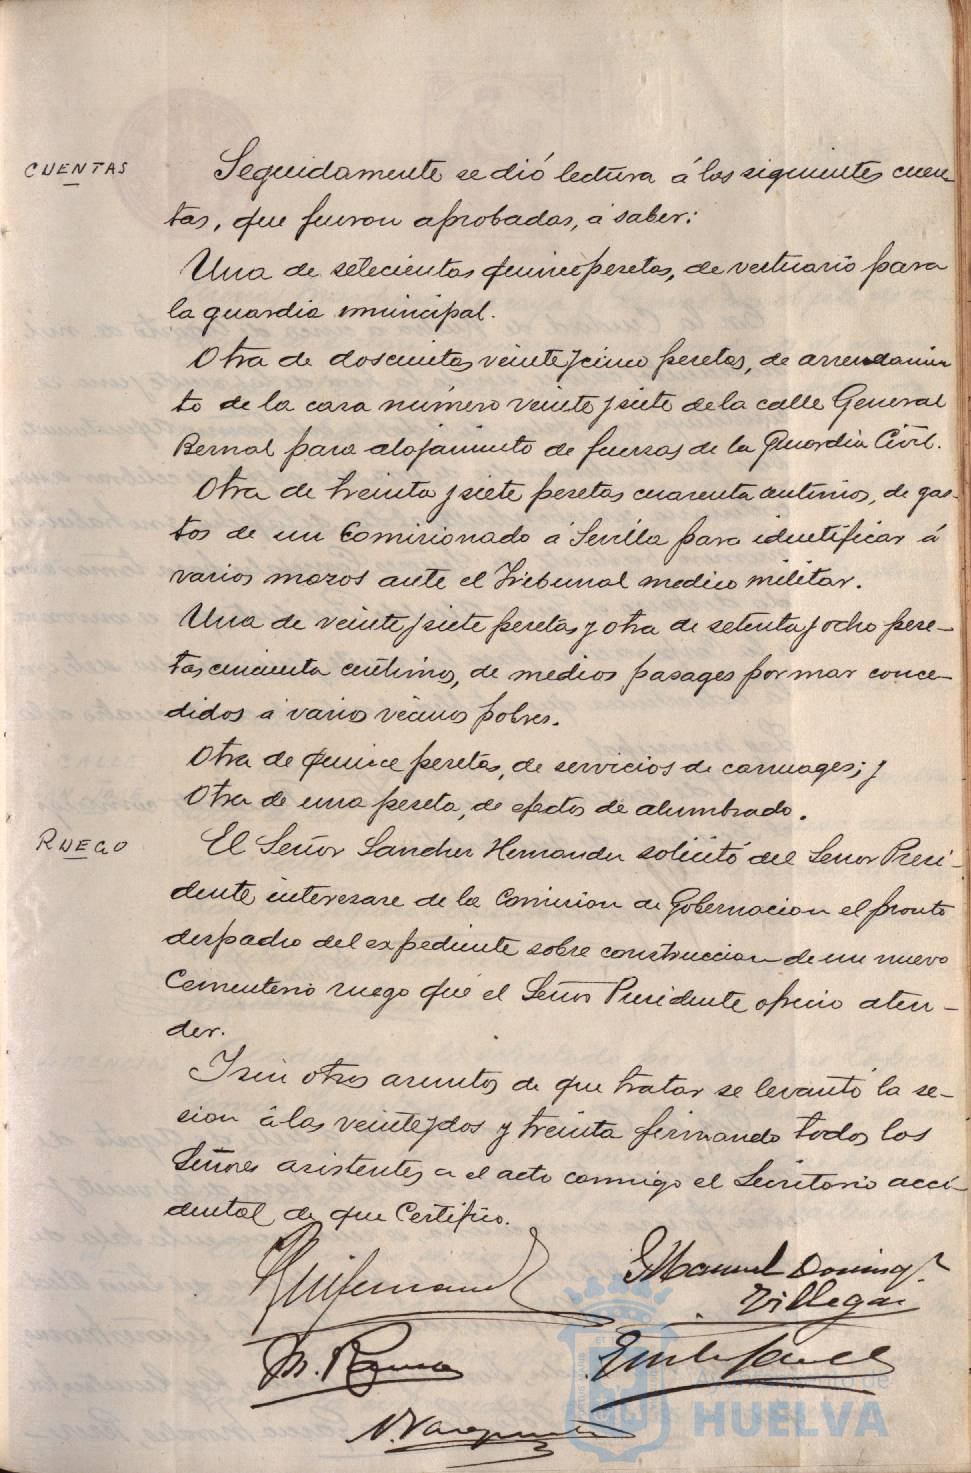 CUENTAS
Seguidamente se dió lectura á las siguientes cuen-
tas, que fueron aprobadas, á saber:
Una de setecientas quince pesetas, de vestuario para
la guardia municipal.
Otra de doscientas veinte y cinco pesetas, de arrendamien
to de la casa número veinte y siete de la calle General
Bernal para alojamiento de fuerzas de la Guardia Civil.
Otra de treinta y siete pesetas cuarenta centimos, de gas-
tos de un Comisionado á Sevilla para identificar á
varios mozos ante el Tribunal medico militar.
Una de veinte y siete pesetas y otra de setenta y ocho pese-
tas cincuenta centimos, de medios pasages por mar conce-
didos á varios vecinos pobres.
Otra de quince pesetas, de servicios de carruages; y
Otra de una peseta, de efectos de alumbrado.
RUEGO
El Señor Sanchez Hernandez solicitó del Señor Presi-
dente interesare de la Comision de Gobernacion el pronto
despacho del expediente sobre construccion de un nuevo
Cementerio ruego que el Señor Presidente ofrecio aten-
der.
Y sin otros asuntos de que tratar se levantó la se-
sion á las veinte y dos y treinta firmando todos los
Señores asistentes a el acto conmigo el Secretario acci-
dental de que Certifico.
Manuel Doming
Villegas
M.
Ayuntamiento de
HUELVA